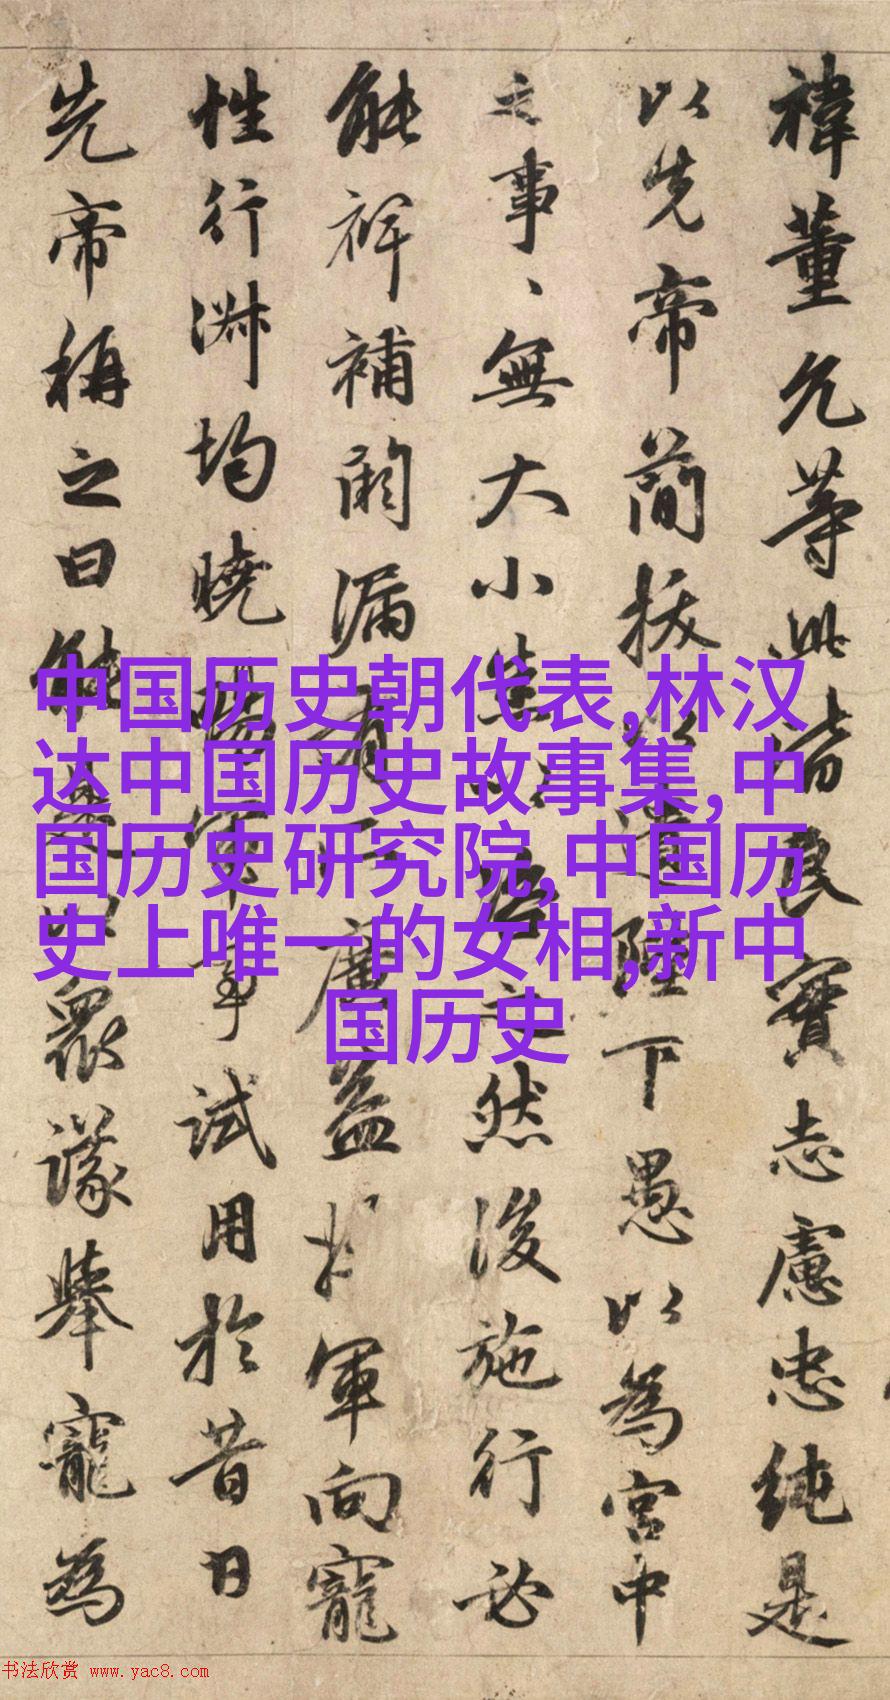 禕董允等此皆良實志慮忠純是
以先帝簡拔以遺陛下愚以為宮中
之事、無大小悉以咨之然後施行必
能裨補闕漏有所廣益軍向寵
性行淑均曉暢軍事試用於昔日
先帝稱之曰能是以衆議舉寵為
中国历史朝代表,林汉
达中国历史故事集,中
国历史研究院,中国历
史上唯一的女相,新中
国历史
书法欣赏 www.yac8.com